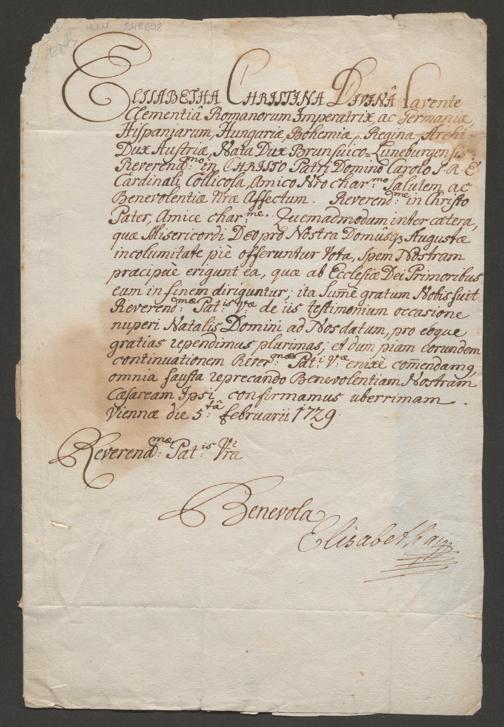 ELISABETHA CHRISTINA DIVINâ favente
Clementiâ Romanorum Imperatrix, ac Germaniæ
Hispaniarum, Hungariæ, Bohemiæ, Regina, Archi-
Dux Austriæ, Nata Dux Brunsuico-Luneburgensis.
Reverend:mo in CHRISTO Patri Domino Carolo S. R. E.
Cardinali Collicola, Amico Nrô char:mo Salutem ac
Benevolentiæ Nræ Affectum. Reverend:me in Christo
Pater, Amice char:me. Quemadmodum inter cætera,
quæ Misericordi DEO pro Nostra Domûsq; Augustæ
incolumitate piè offeruntur Vota, Spem Nostram
præcipuè erigunt ea, quæ ab Ecclesiæ Dei Primoribus
eum in finem diriguntur; ita Sumè gratum Nobis fuit
Reverend:mæ Pat:is Vræ de iis testimonium occasione
nuperi Natalis Domini ad Nos datum, pro eoque
gratias rependimus plurimas, et dum piam eorundem
continuationem Rever:mæ Pat:i V:æ enixè comendamq
omnia fausta reprecando Benevolentiam Nostram
Cæsaream Ipsi confirmamus uberrimam.
Viennæ die 5:tâ februarii 1729.
Reverend:mæ Pat:is Vræ
Benevola
Elisabetha